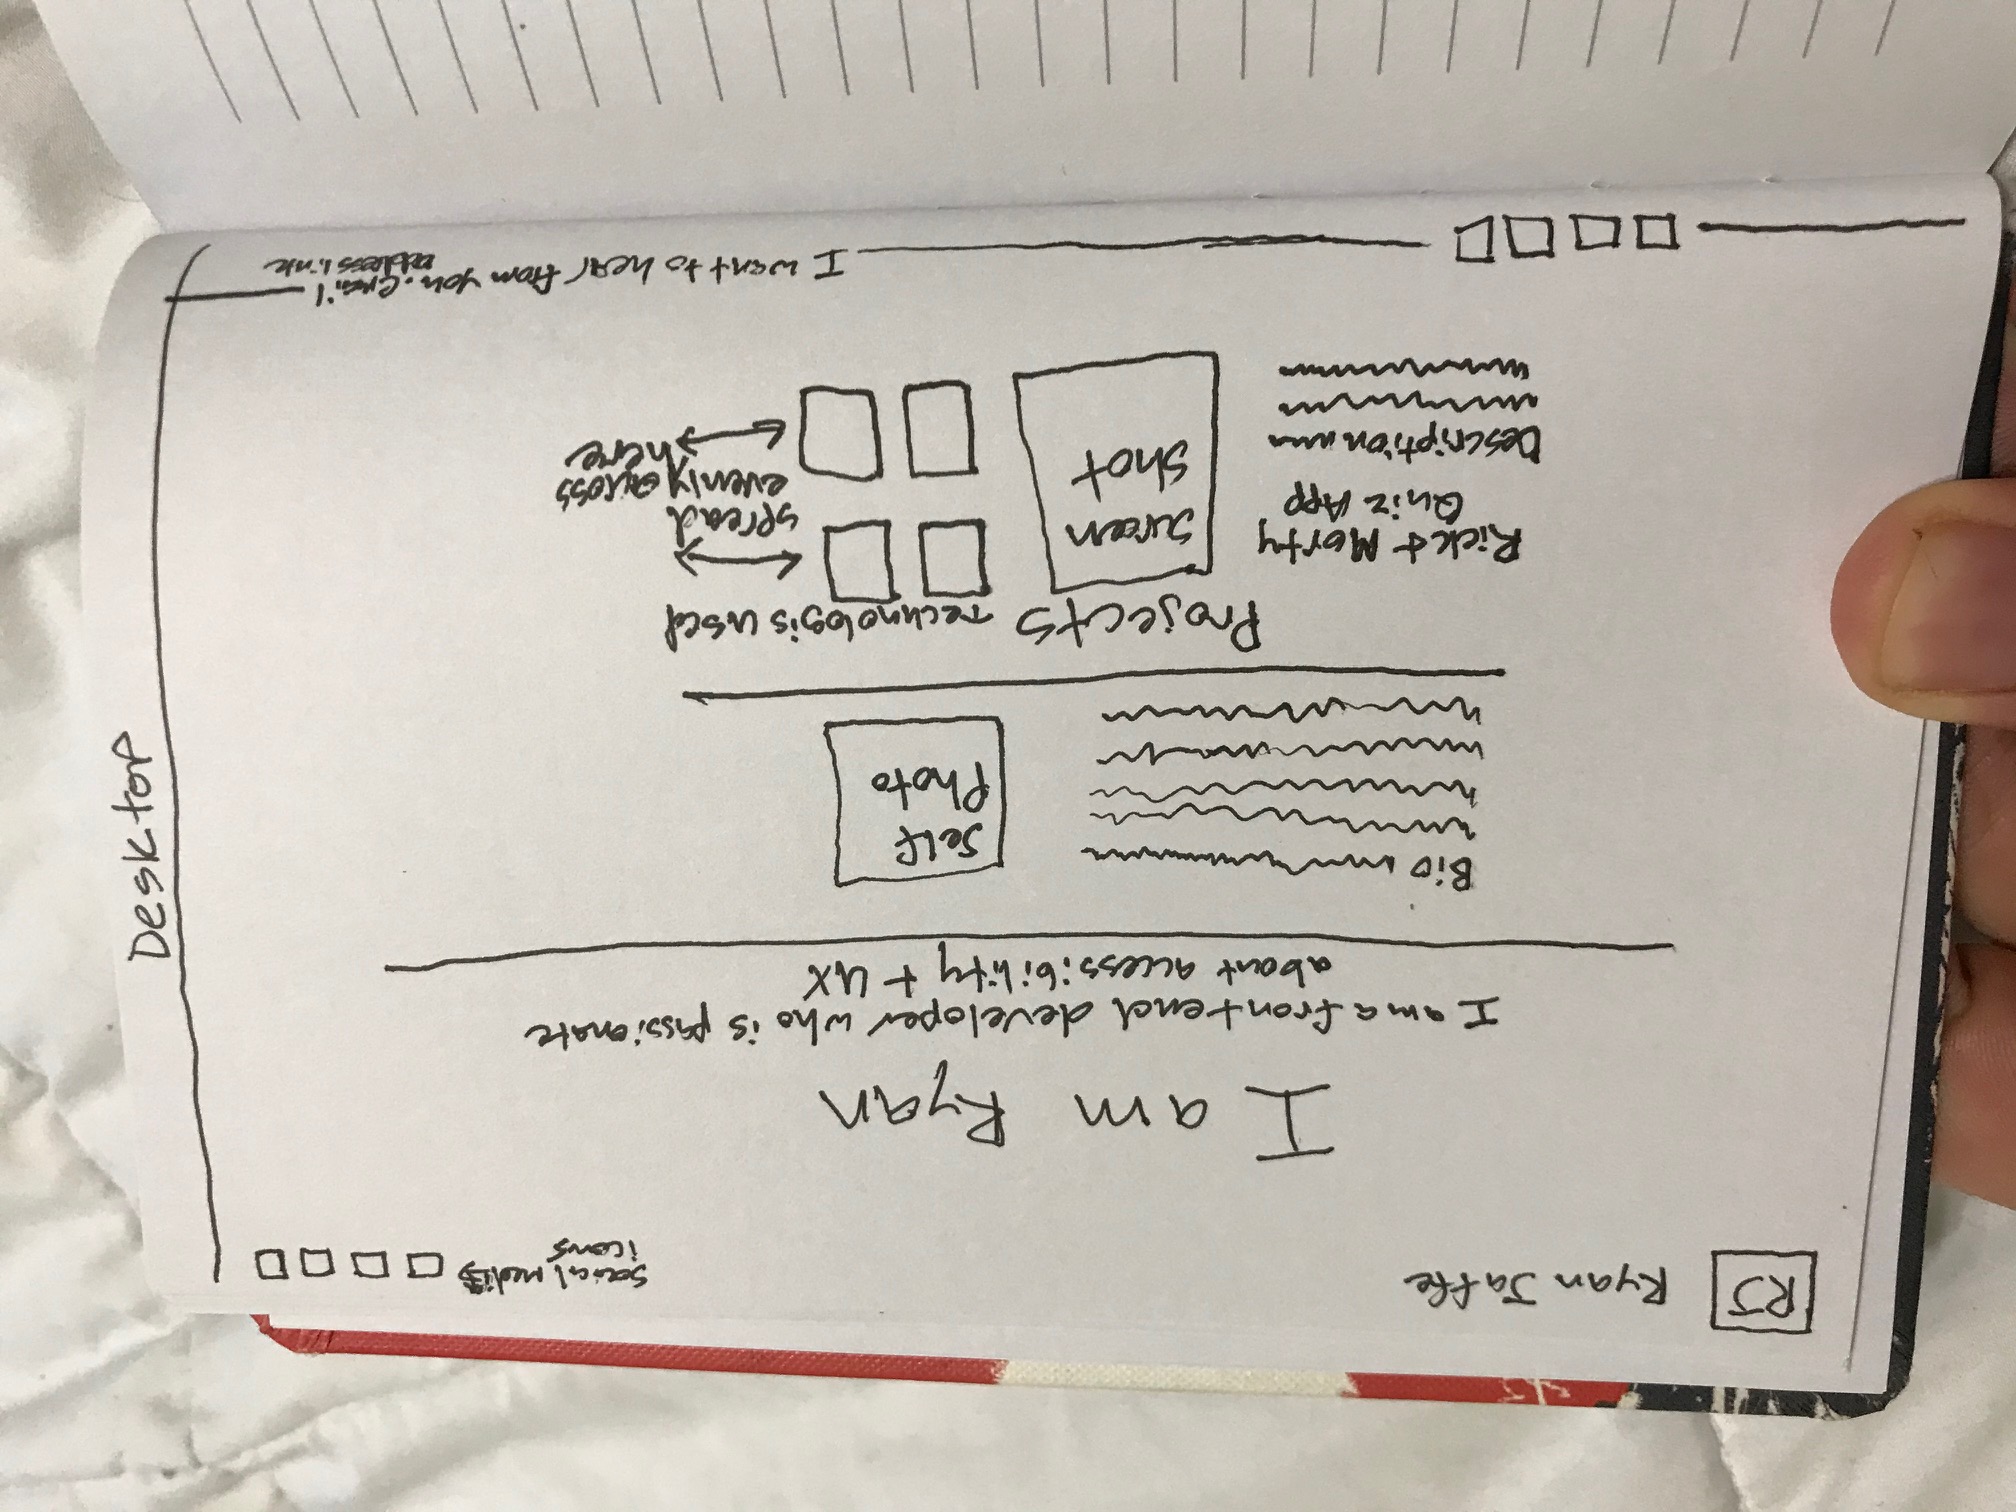 Desktop
RJ Ryan Jaffe
social media
icons
I am Ryan
I am a frontend developer who is passionate
about accessibility + UX
Bio
Self
Photo
Projects
Rick + Morty
Quiz App
Description
Screen
Shot
Technologis used
spread
evenly across
here
I want to hear from you. Email
address link